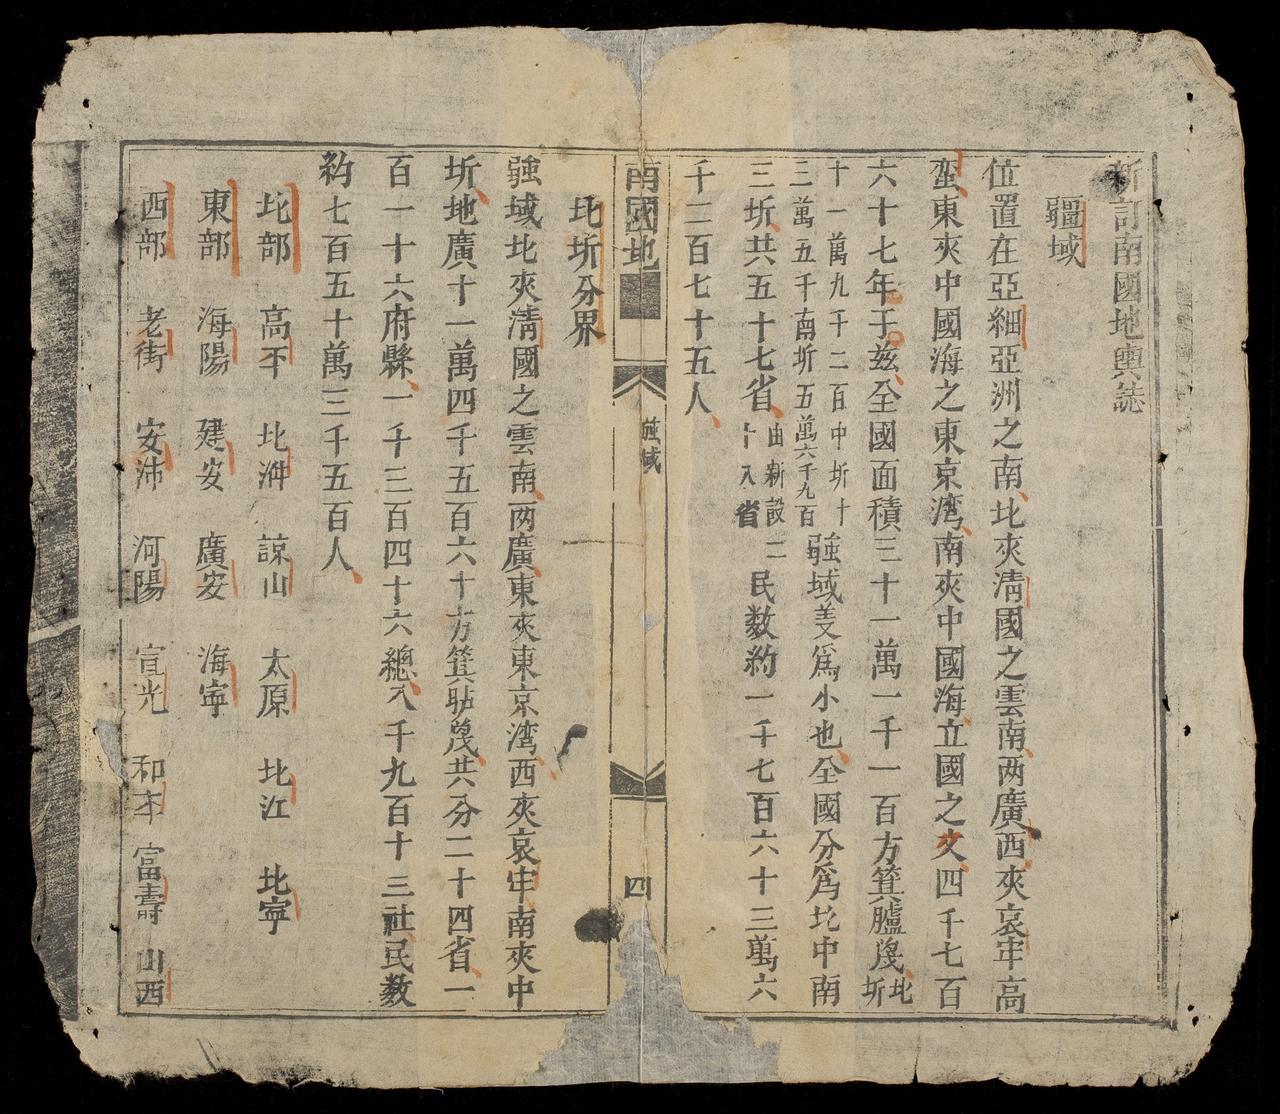 新訂南國地輿誌
疆域
位置在亞細亞洲之南北夾清國之雲南两廣西夾哀牢高
蛮東夾中國海之東京湾南夾中國海立國之文四千七百
六十七年于兹全國面積三十一萬一千一百方箕臚𠡎北圻
十一萬九千二百中圻十
三萬五千南圻五萬六千九百
疆域羑爲小也全國分爲北中南
三圻共五十七省由新設二
十八省
民数約一千七百六十三萬六
千二百七十五人
南國地
疆域
四
北圻分界
疆域北夾清國之雲南两廣東夾東京湾西夾哀牢南夾中
圻地廣十一萬四千五百六十方箕共分二十四省一
百一十六府縣一千三百四十六總八千九百十三社民数
約七百五十萬三千五百人
北部 高平 北㴍 諒山 太原 北江 北寧
東部 海陽 建安 廣安 海寧
西部 老街 安沛 河陽 宣光 和平 富壽 山西